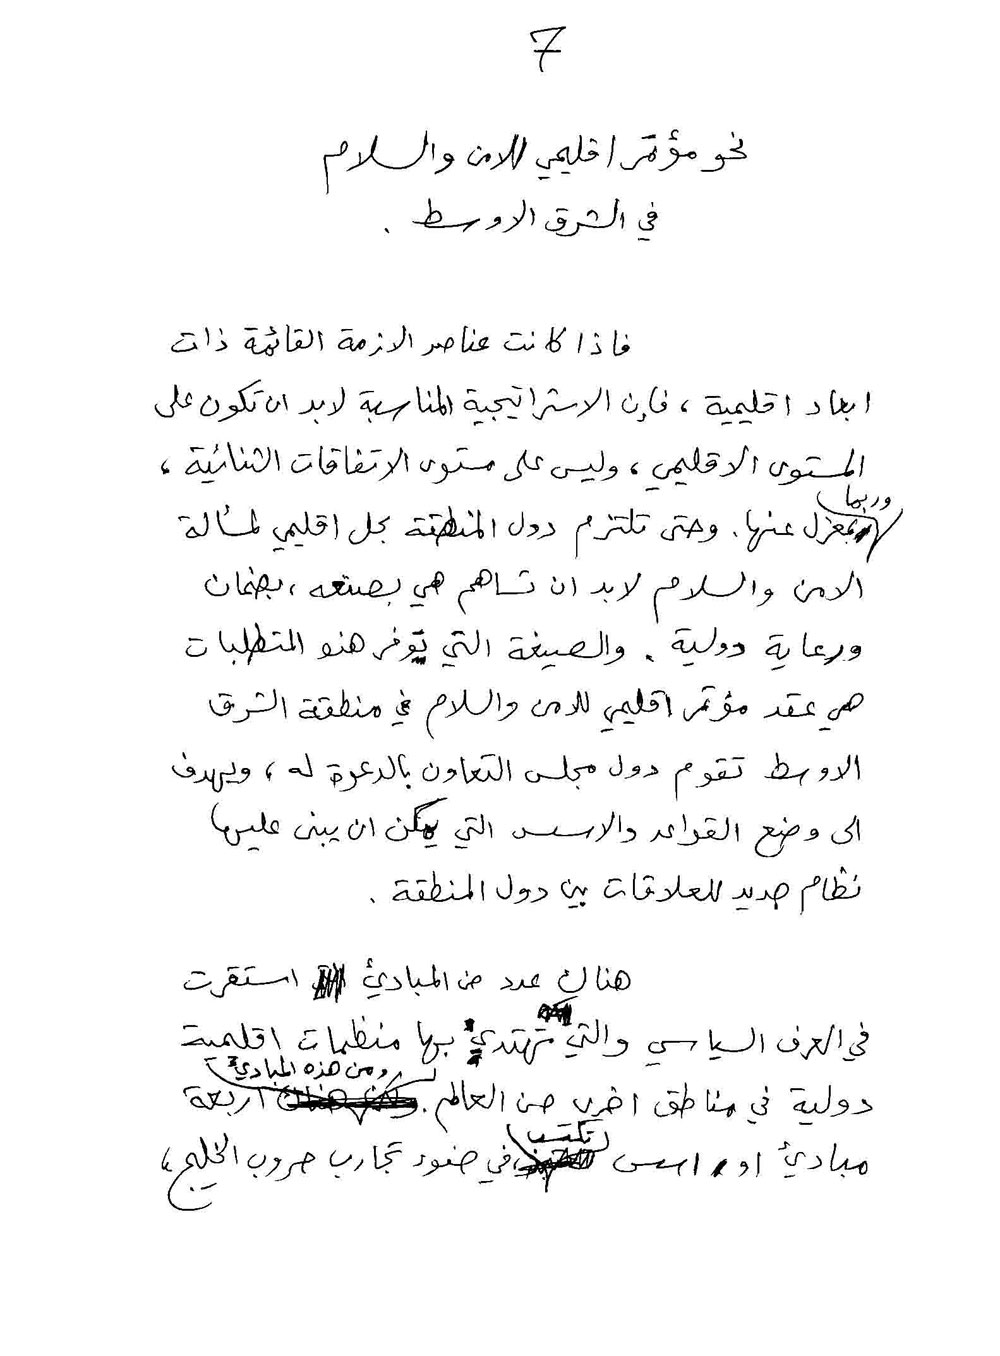 7
نحو مؤتمر اقليمي للامن والسلام
في الشرق الاوسط .
فاذا كانت عناصر الازمة القائمة ذات
ابعاد اقليمية ، فإن الاستراتيجية المناسبة لابد ان تكون على
المستوى الاقليمي ، وليس على مستوى الاتفاقات الثنائية ،
وربما
بمعزل عنها. وحتى تلتزم دول المنطقة بحل اقليمي لمسألة
الامن والسلام لابد ان تساهم هي بصنعه ، بضمان
ورعاية دولية . والصيغة التي توفر هذه المتطلبات
هي عقد مؤتمر اقليمي للامن والسلام في منطقة الشرق
الاوسط تقوم دول مجلس التعاون بالدعوة له ، ويهدف
الى وضع القواعد والاسس التي يمكن ان يبنى عليها
نظام جديد للعلاقات بين دول المنطقة .
هناك عدد من المبادئ استقرت
في العرف السياسي والتي تهتدي بها منظمات اقليمية
ومن هذه المبادئ
دولية في مناطق اخرى من العالم . اربعة
تكتسب
مبادئ او اسس في ضوء تجارب حروب الخليج ،